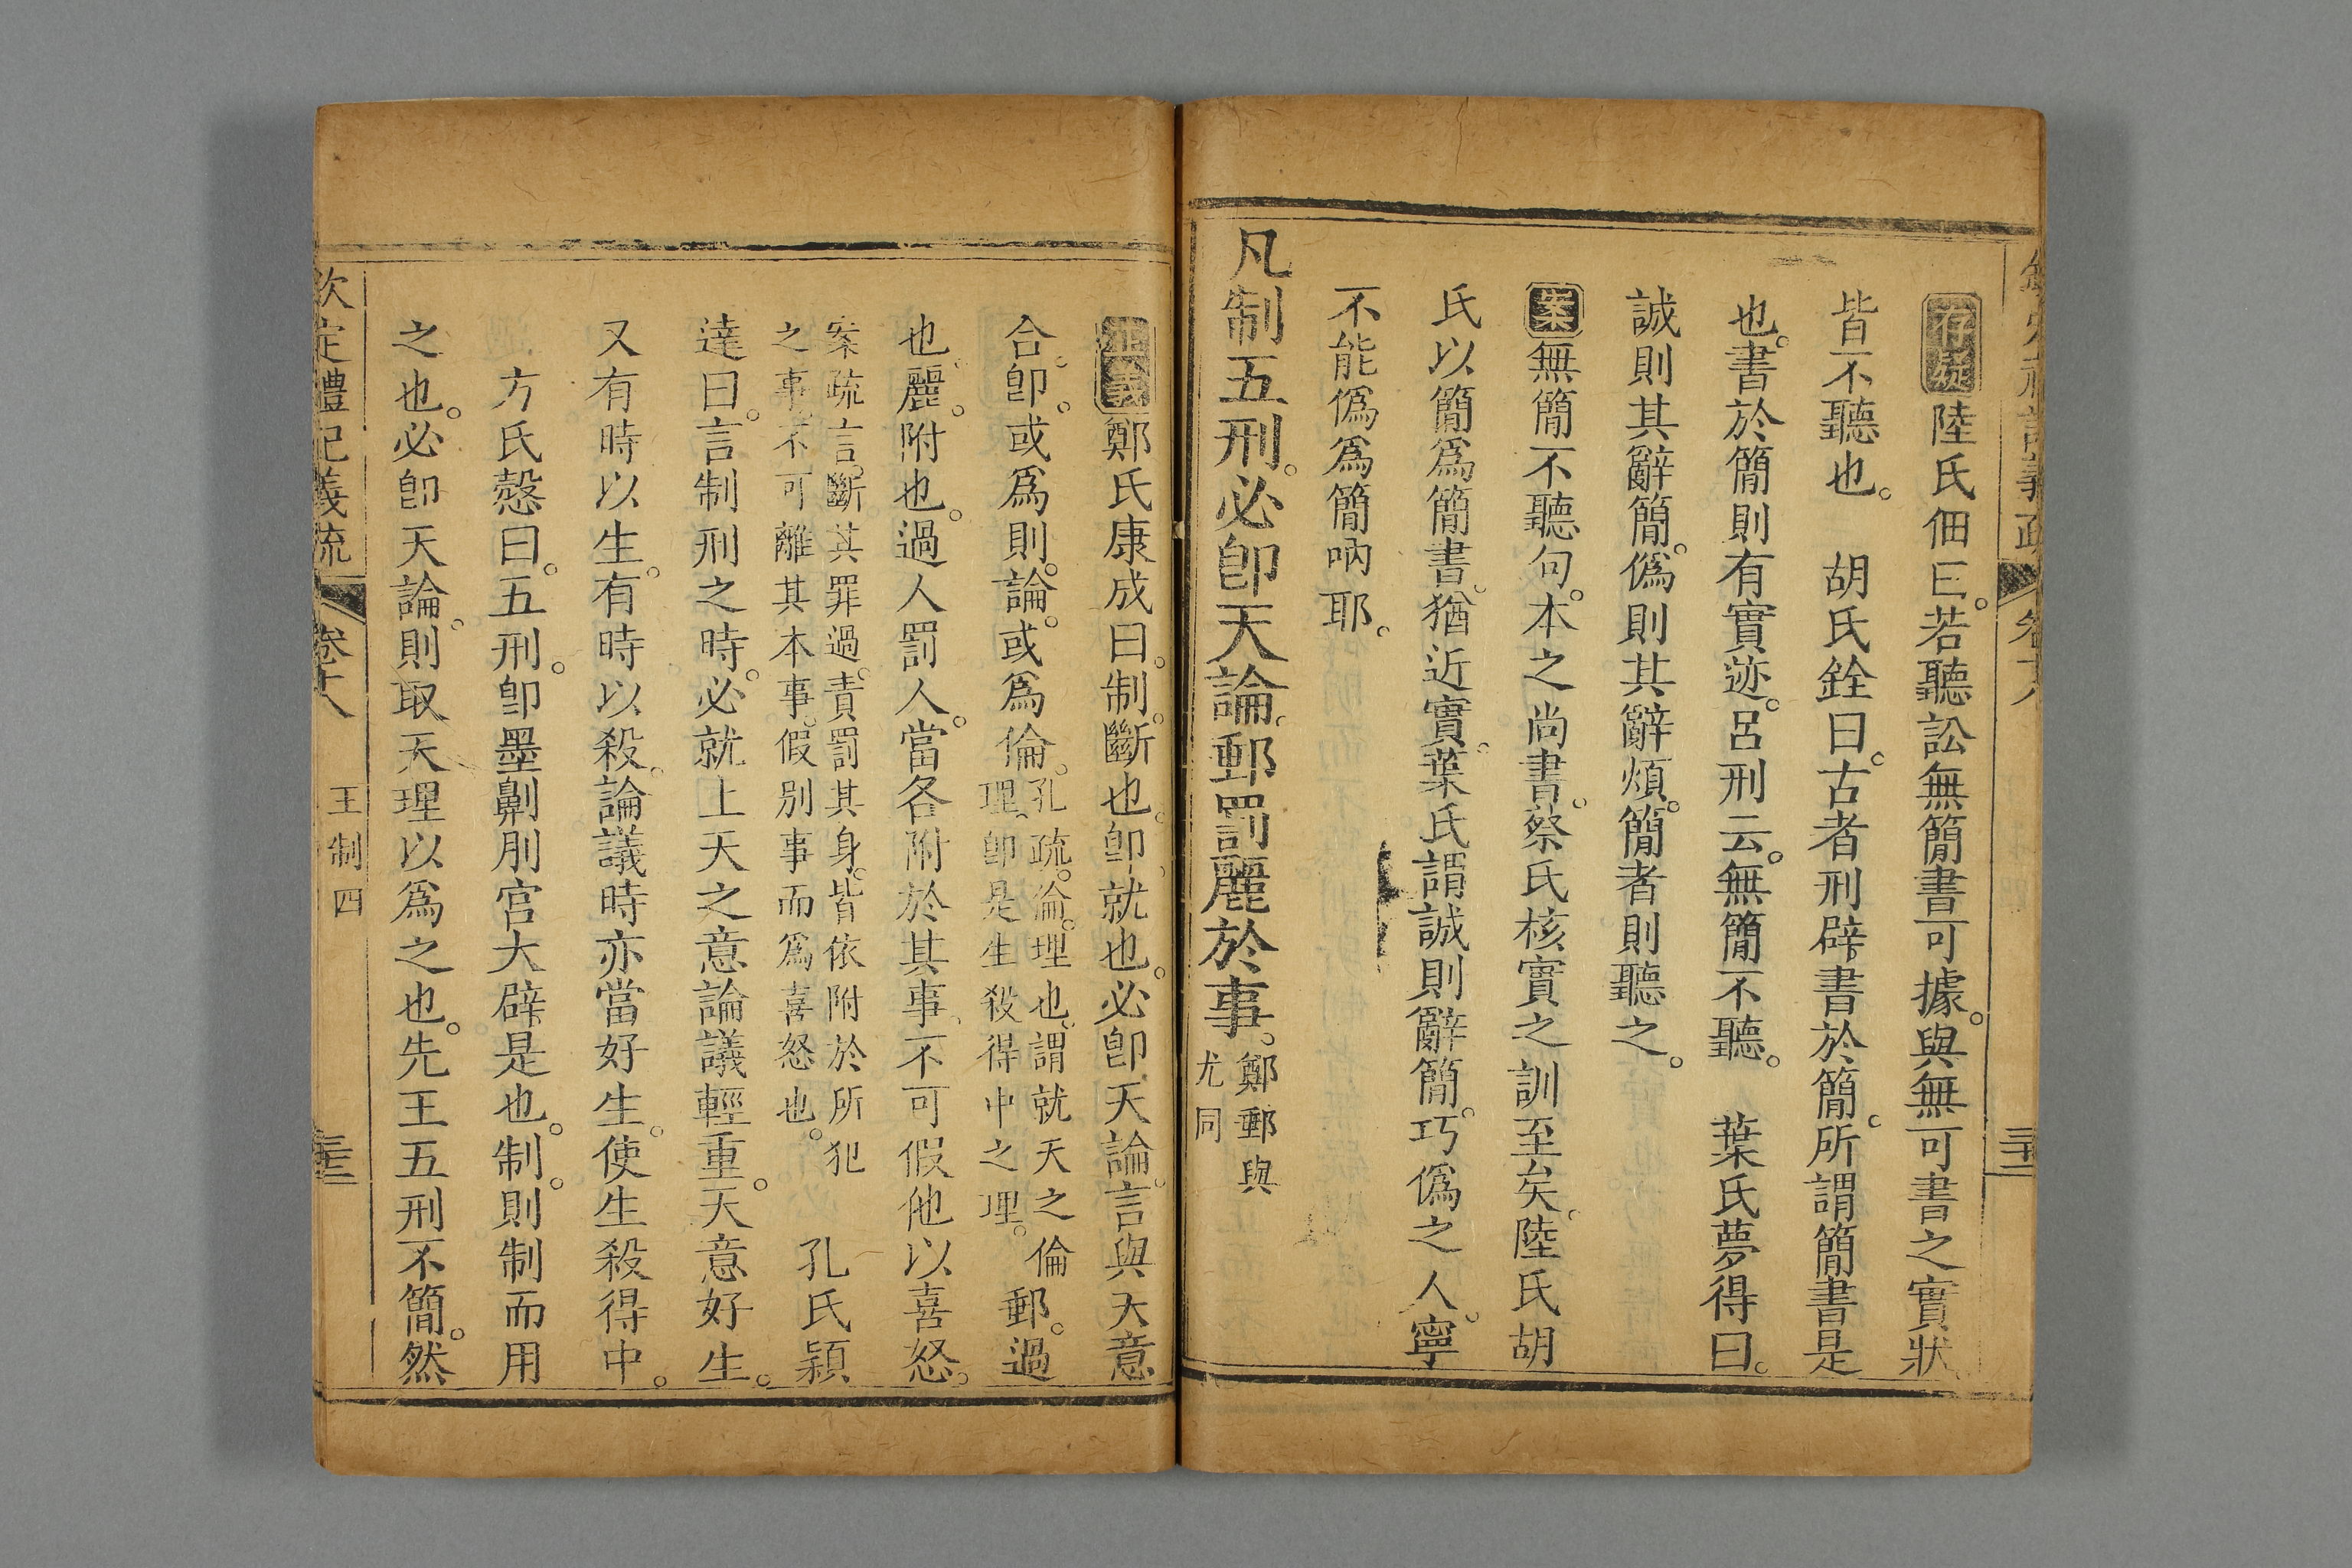 存疑陸氏佃曰。若聽訟無簡書可據。與無可書之實狀。
皆不聽也。　胡氏銓曰。古者刑辟書於簡。所謂簡書是
也。書於簡則有實迹。呂刑云。無簡不聽。　葉氏夢得曰。
誠則其辭簡。偽則其辭煩。簡者則聽之。
案無簡不聽句。本之尚書。蔡氏核實之訓至矣。陸氏胡
氏以簡爲簡書。猶近實。葉氏謂誠則辭簡。巧偽之人。寧
不能偽爲簡吶耶。
凡制五刑。必卽天論。郵罰麗於事。鄭郵與
尤同
正義鄭氏康成曰。制。斷也。卽。就也。必卽天論。言與天意
合。卽。或爲則。論。或爲倫。孔疏。論。理也。謂就天之倫
理。卽是生殺得中之理。郵。過
也。麗。附也。過人罰人。當各附於其事。不可假他以喜怒。
案疏言。斷其罪過。責罰其身。皆依附於所犯
之事。不可離其本事。假別事而爲喜怒也。　孔氏穎
達曰。言制刑之時。必就上天之意論議輕重。天意好生。
又有時以生。有時以殺。論議時亦當好生。使生殺得中。
方氏慤曰。五刑。卽墨劓刖宮大辟是也。制。則制而用
之也。必卽天論。則取天理以爲之也。先王五刑不簡。然
欽定禮記義疏
卷十八
王制四
三十三